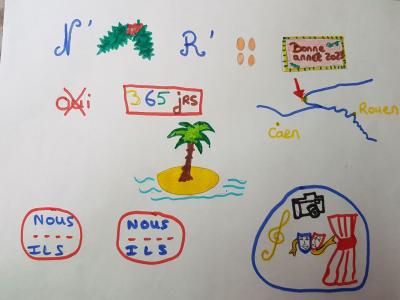 N'
R'
Bonne
année 2023
Oui
365 jrs
Rouen
Caen
Nous
ILS
Nous
ILS